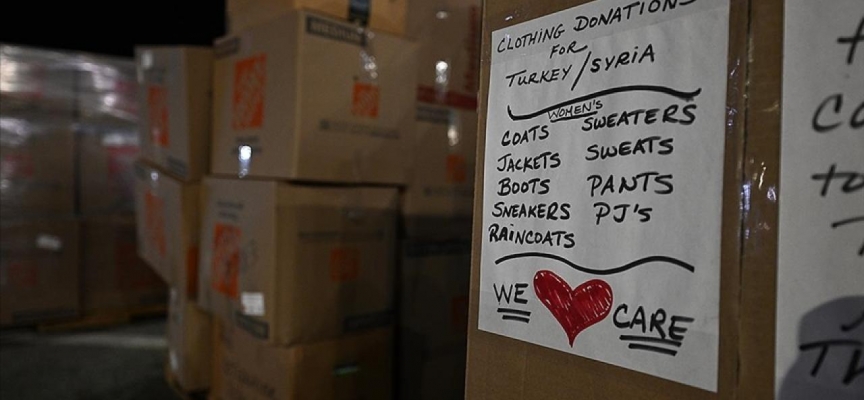 CLOTHING DONATIONS
FOR
TURKEY/SYRIA
WOMEN'S
COATS
JACKETS
BOOTS
SNEAKERS
RAINCOATS
SWEATERS
SWEATS
PANTS
PJ's
WE CARE
to